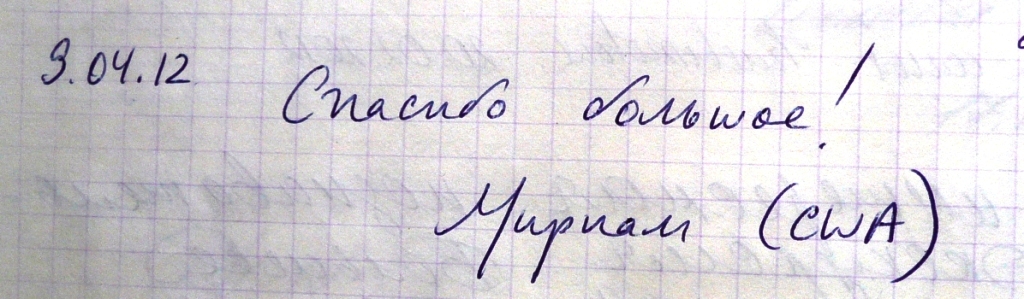 9.04.12
Спасибо большое!
Мириам (США)